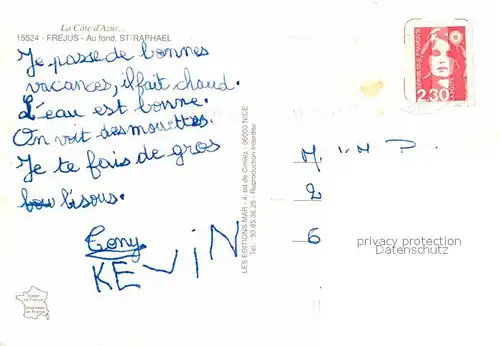 La Côte d'Azur...
15524 - FREJUS - Au fond, ST-RAPHAEL
Je passe de bonnes
vacances, il fait chaud.
L'eau est bonne.
On voit des mouettes.
Je te fais de gros
bisous.
Tony
KEVIN
LES EDITIONS MAR - 4, bd de Cimiez - 06000 NICE
Tél. : 93.85.36.25 - Reproduction Interdite
REPUBLIQUE FRANÇAISE
2,30
2
6
privacy protection
Datenschutz